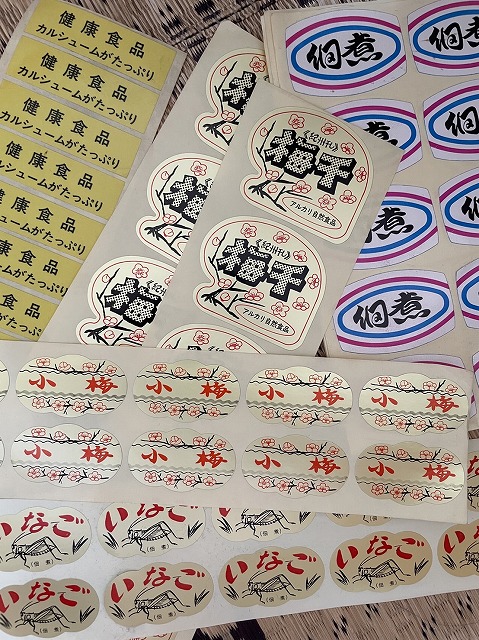 健康食品
カルシュームがたっぷり
健康食品
カルシュームがたっぷり
健康食品
カルシュームがたっぷり
健康食品
カルシュームがたっぷり
健康食品
カルシュームがたっぷり
健康食品
シュームがたっぷり
健康食品
ュームがたっぷり
梅
梅
梅
《紀州干し》
梅干
アルカリ自然食品
《紀州干し》
梅干
アルカリ自然食品
佃煮
佃煮
佃煮
佃煮
佃煮
佃煮
小梅
小梅
小梅
小梅
小梅
小梅
小梅
小梅
いなご
(佃煮)
いなご
(佃煮)
いなご
(佃煮)
いなご
(佃煮)
いなご
(佃煮)
いなご
(佃煮)